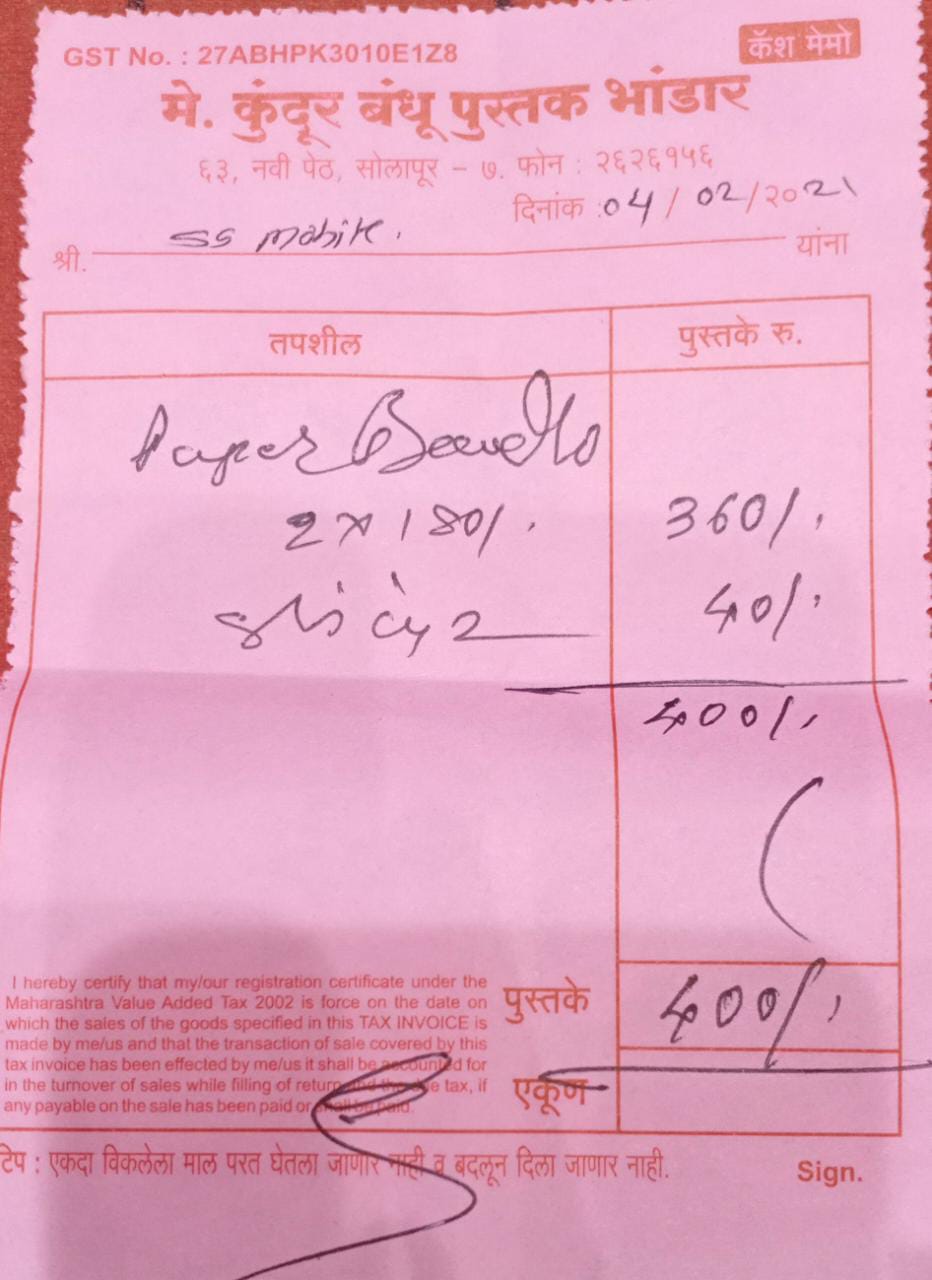 GST No. : 27ABHPK3010E1Z8
कॅश मेमो
मे. कुंदूर बंधू पुस्तक भांडार
६३, नवी पेठ, सोलापूर – ७. फोन : २६२६१५६
दिनांक : 04/02/२०21
श्री. SS यांना
तपशील पुस्तके रु.
Paper
2 x 180/. 360/.
40/.
400/.
I hereby certify that my/our registration certificate under the
Maharashtra Value Added Tax 2002 is force on the date on
which the sales of the goods specified in this TAX INVOICE is
made by me/us and that the transaction of sale covered by this
tax invoice has been effected by me/us it shall be accounted for
in the turnover of sales while filling of return and the due tax, if
any payable on the sale has been paid or shall be paid.
पुस्तके 400/.
एकूण
टिप : एकदा विकलेला माल परत घेतला जाणार नाही व बदलून दिला जाणार नाही.
Sign.